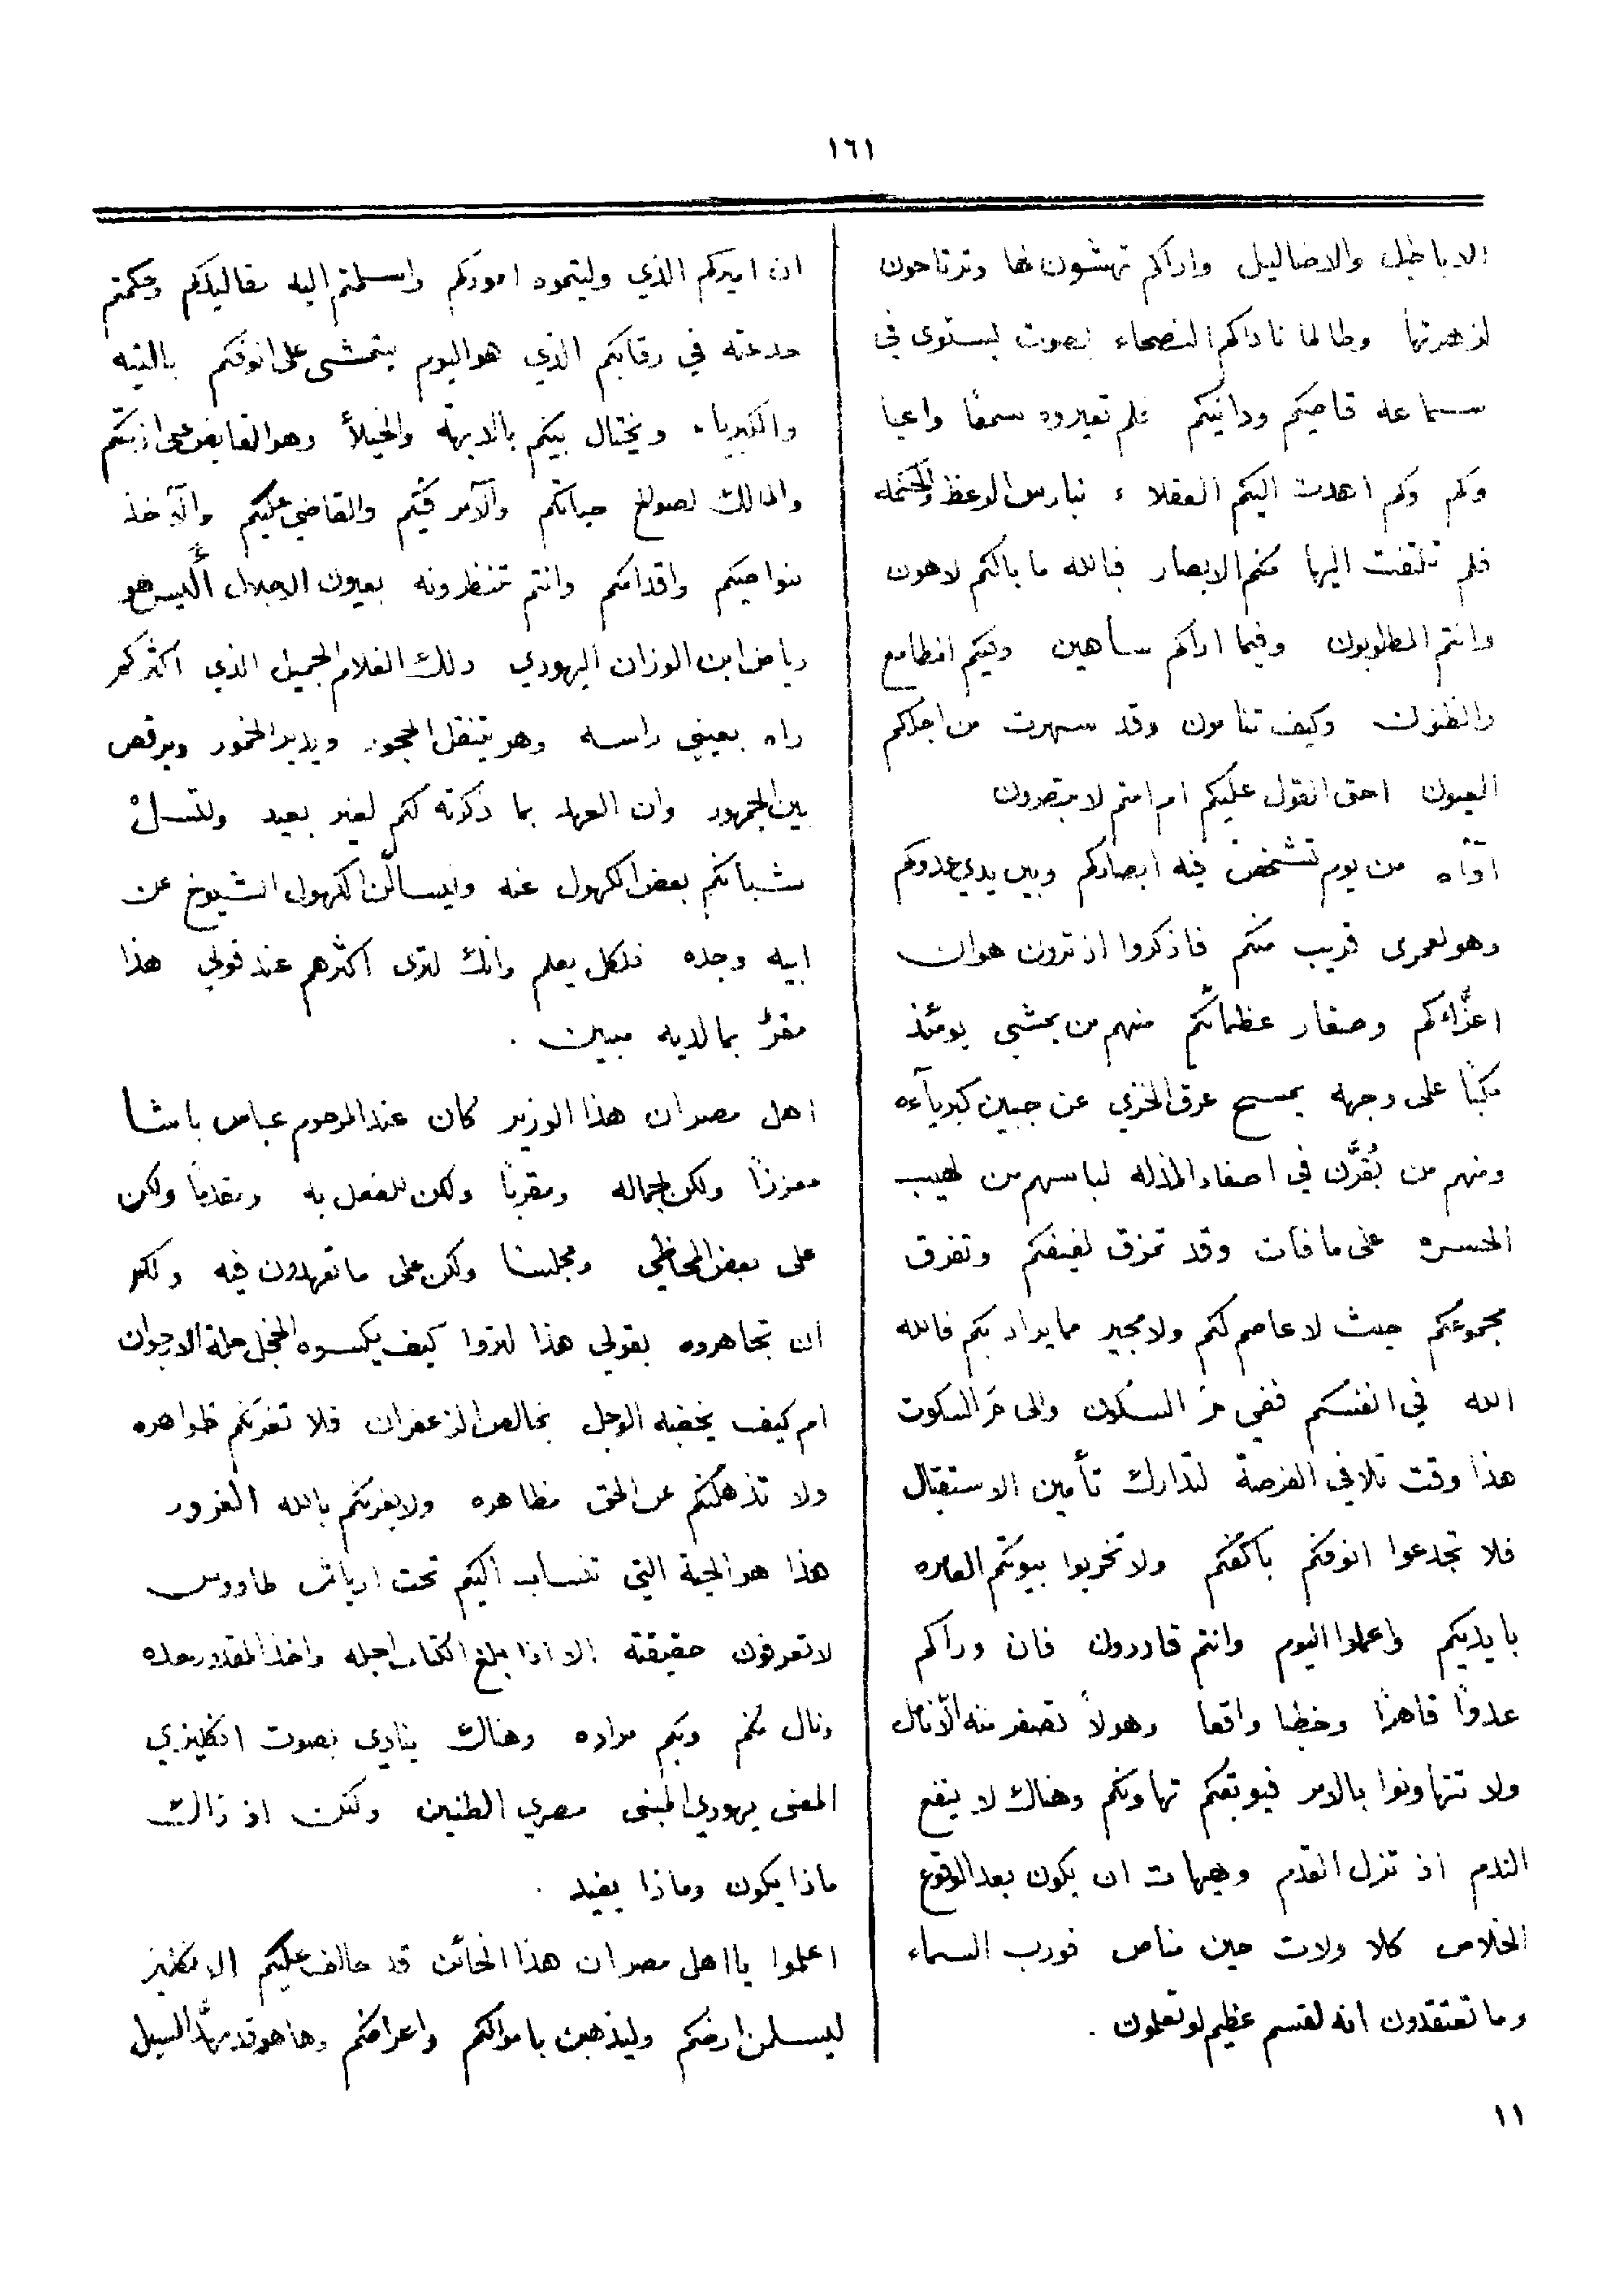 ١٦١
الاباطيل والاضاليل واراكم تهشون لها وترتاحون
لزهرتها وطالما ناداكم النصحاء بصوت يستوى في
سماعه قاصيكم ودانيكم فلم تعيروه سمعًا واعيا
وكم وكم اهدت اليكم العقلاء نبارس الوعظ والحكمه
فلم تلتفت اليها منكم الابصار فبالله ما بالكم لاهون
وانتم المطلوبون وفيما اراكم ساهين وفيكم المطامع
والظنون وكيف تنامون وقد سهرت من اجلكم
العيون احق القول عليكم ام انتم لا تبصرون
اوّاه من يوم تشخص فيه ابصاركم وبين يدي عدوكم
وهو لعمرى قريب منكم فاذكروا اذ ترون هوان
اعزّاءكم وصغار عظمائكم منهم من يمشي يومئذ
مكبّا على وجهه يمسح عرق الخزي عن جبين كبرياءه
ومنهم من يُقرَّن في اصفاد المذله لباسهم من لهيب
الحسره على ما فات وقد تمزق لفيفكم وتفرق
مجموعكم حيث لا عاصم لكم ولا مجير مما يراد بكم فالله
الله في انفسكم ففي مَ السكون والى مَ السكوت
هذا وقت تلافي الفرصة لتدارك تأمين الاستقبال
فلا تجدعوا انوفكم باكفكم ولا تخربوا بيوتكم العامره
بايديكم واعملوا اليوم وانتم قادرون فان وراكم
عدوًا قاهرًا وخطبا واقعا وهولاً تصفر منه الانامل
ولا تتهاونوا بالامر فيوبقكم تهاونكم وهناك لا ينفع
الندم اذ تزل القدم وهيهات ان يكون بعد الوقوع
الخلاص كلا ولات حين مناص فورب السماء
وما تعتقدون انه لقسم عظيم لو تعلمون .
ان اميركم الذي وليتموه اموركم واسلمتم اليه مقاليدكم وحكمتم
في رقابكم الذي هو اليوم يتمشى على انوفكم بالتيه
والكبرياء ويختال بينكم بالابهة والخيلاء وهو القابض على ازمتكم
والمالك لصولج حياتكم والآمر فيكم والقاضي عليكم والآخذ
بنواصيكم واقدامكم وانتم تنظرونه بعيون الاجلال أليس هو
رياض ابن الوزان اليهودي ذلك الغلام الجميل الذي اكثركم
راه بعيني راسه وهو يتنقل الحجور ويدير الخمور ويرقص
بين الجمهور وان العهد بما ذكرته لكم لغير بعيد ولتسل
شبانكم بعض الكهول عنه وليسألن الكهول الشيوخ عن
ابيه وجده فلكل يعلم وانك لترى اكثرهم عند قولي هذا
مقرٌ بما لديه مبين .
اهل مصر ان هذا الوزير كان عند المرحوم عباس باشا
معززًا ولكن لجماله ومقربًا ولكن للفعل به ومقدمًا ولكن
على بعض المحاظي ومجلسا ولكن على ما تعهدون فيه ولكم
ان تجاهروه بقولي هذا لتروا كيف يكسوه الخجل حلة الارجوان
ام كيف يخضبه الوجل بخالص الزعفران فلا تغرنكم ظواهره
ولا تذهلنكم عن الحق مظاهره ولا يغرنكم بالله الغرور
هذا هو الحية التي تنساب اليكم تحت ارياش طاووس
لا تعرفون حقيقته الا اذا بلغ الكتاب اجله واخذ المقدور
ونال منكم وبكم مراده وهناك ينادى بصوت انكليزي
المعنى يهودي المبنى مصري الطنين ولكن اذ ذالك
ماذا يكون وماذا يفيد .
اعلموا يا اهل مصر ان هذا الخائن قد حالف عليكم الانكليز
ليسلمن ارضكم وليذهبن باموالكم واعراضكم وها هو قد مهّد السبيل
١١